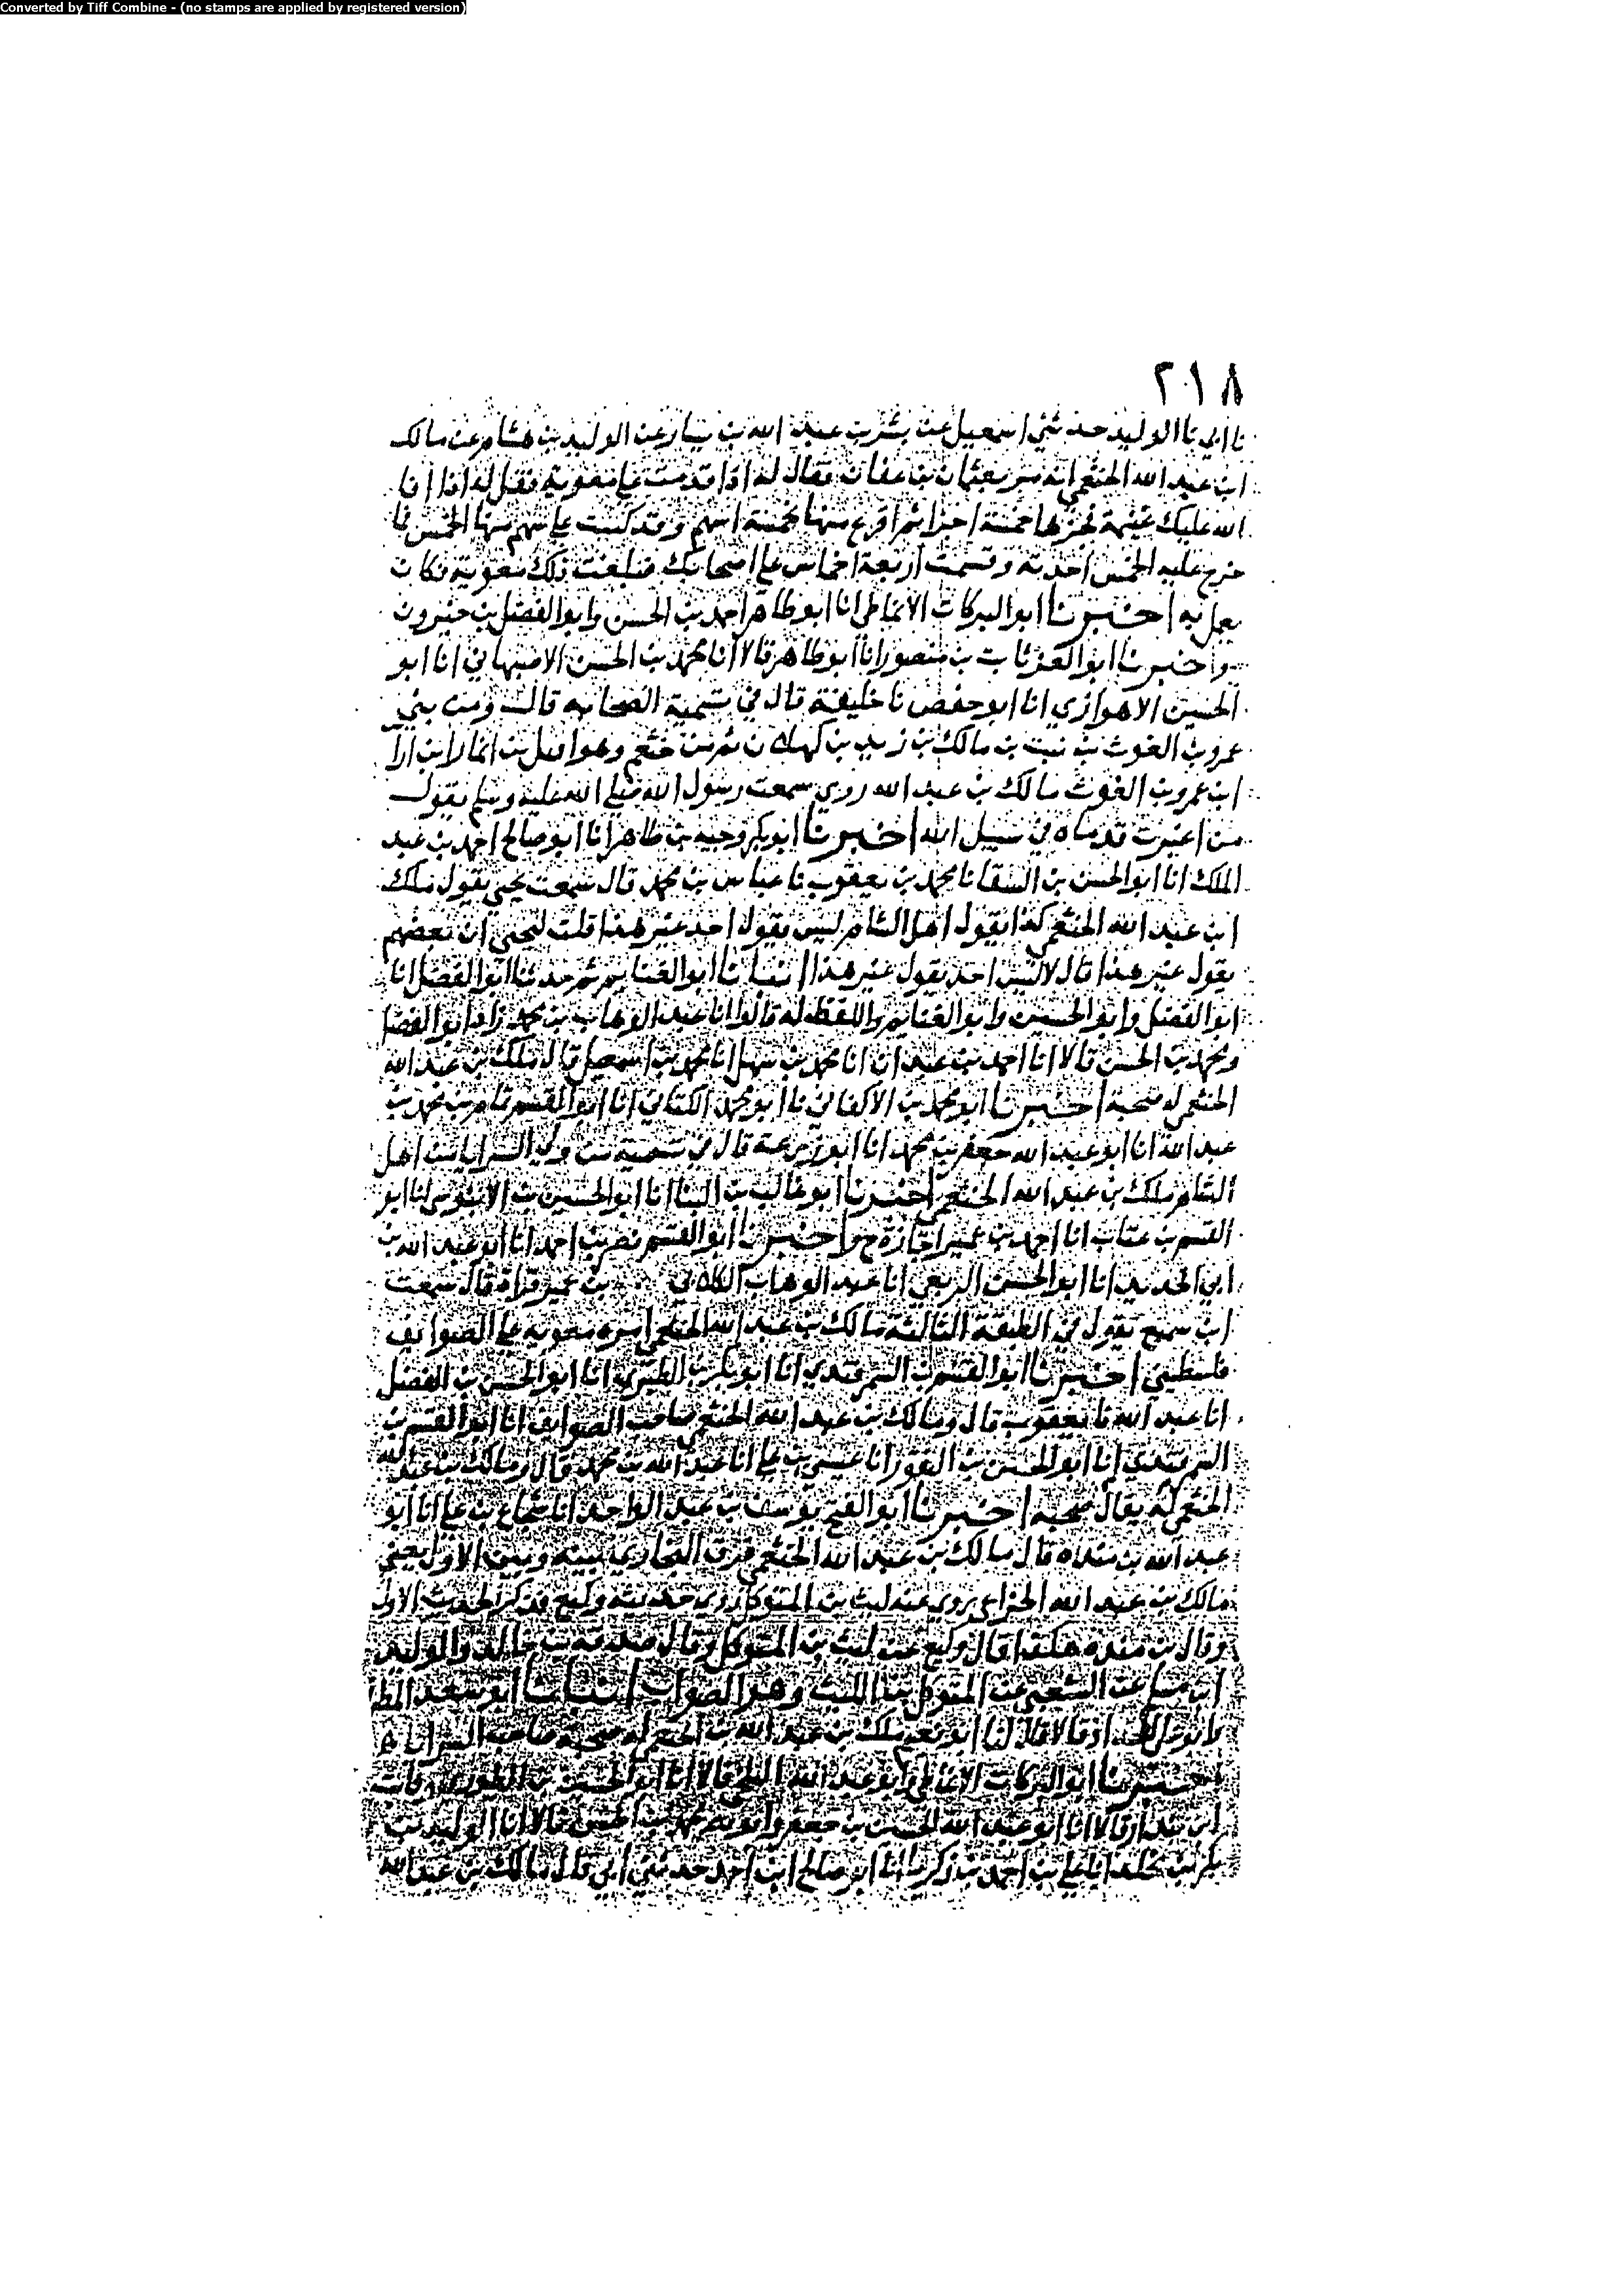 Converted by Tiff Combine - (no stamps are applied by registered version)
٢١٨
نا ابي نا الوليد حدثني اسمعيل عن بشر بن عبد الله بن يسار عن الوليد بن هشام عن مالك
ابن عبد الله الخثعمي انه مر بعثمان بن عفان فقال له اذا قدمت على معوية فقل له اذا افا
الله عليك غنيمة فجزها خمسة اجزا ثم اقرع منها بخمسة اسهم وقد كتبت على سهم منها الخمس فا
خرج عليه الخمس اخذته وقسمت اربعة اخماس على اصحابك فبلغت ذلك معوية فكان
يعمل به اخبرنا ابو البركات الانماطي انا ابو طاهر احمد بن الحسن وابو الفضل بن خيرون
واخبرنا ابو العز ثابت بن منصور انا ابو طاهر قالا انا محمد بن الحسن الاصبهاني انا ابو
الحسين الاهوازي انا ابو حفص نا خليفة قال في تسمية الصحابه قال ومن بني
عمرو بن الغوث بن نبت بن مالك بن زيد بن كهلان ثم من خثعم وهو افتل بن انمار ابن ارا
ابن عمرو بن الغوث مالك بن عبد الله روي سمعت رسول الله صلى الله عليه وسلم يقول
من اغبرت قدماه في سبيل الله اخبرنا ابو بكر وجيه بن طاهر انا ابو صالح احمد بن عبد
الملك انا ابو الحسن بن السقا نا محمد بن يعقوب نا عباس بن محمد قال سمعت يحيى يقول ملك
ابن عبد الله الخثعمي كذا يقول اهل الشام ليس يقول احد غير هذا قلت ليحيى ان بعضهم
يقول غير هذا قال لا ليس احد يقول غير هذا انبانا ابو الغنايم ثم حدثنا ابو الفضل انا
ابو الفضل وابو الحسين وابو الغنايم واللفظ له قالوا انا عبد الوهاب بن محمد زاد ابو الفضل
ومحمد بن الحسن قالا انا احمد بن عبدان انا محمد بن سهل انا محمد بن اسمعيل قال ملك بن عبد الله
الخثعمي له صحبة اخبرنا ابو محمد بن الاكفاني نا ابو محمد الكتاني انا ابو القسم تمام بن محمد بن
عبد الله انا ابو عبد الله جعفر بن محمد انا ابو زرعة قال في تسمية من ولي السرايا من اهل
الشام ملك بن عبد الله الخثعمي اخبرنا ابو غالب بن البنا انا ابو الحسين بن الابنوسي انا ابو
القسم بن عتاب انا احمد بن عمير اجازة ح واخبرنا ابو القسم نصر بن احمد انا ابو عبد الله بن
ابي الحديد انا ابو الحسن الربعي انا عبد الوهاب الكلابي بن عمير قراة قال سمعت
ابن سميع يقول في الطبقة الثالثة مالك بن عبد الله الخثعمي امره معويه على الصوايف
فلسطيني اخبرنا ابو القسم بن السمرقندي انا ابو بكر بن الطبري انا ابو الحسين بن الفضل
انا عبد الله نا يعقوب قال ومالك بن عبد الله الخثعمي صاحب الصوايف انا ابو القسم بن
السمرقندي انا ابو الحسين بن النقور انا عيسى بن علي انا عبد الله بن محمد قال ومالك بن عبد الله
الخثعمي يقال له صحبه اخبرنا ابو الفتح يوسف بن عبد الواحد انا شجاع بن علي انا ابو
عبد الله بن منده قال مالك بن عبد الله الخثعمي فرق البخاري بينه وبين الاول يعني
مالك بن عبد الله الخزاعي يروي عنه ليث بن المتوكل روي حديثه وكيع فذكر الحديث الاول
وقال بن منده هكذا قال وكيع عن ليث بن المتوكل وقال صدقة بن خالد والوليد
ابن مسلم عن الشعيثي عن المتوكل بن الليث وهو الصواب انبانا ابو سعد المط
وابو علي الحداد قالا قال لنا ابو نعيم ملك بن عبد الله بن الخثعمي له صحبة صاحب السرايا
اخبرنا ابو البركات الانماطي وابو عبد الله البلخي قالا انا ابو الحسين بن الطيوري وثابت
ابن بندار قالا انا ابو عبد الله الحسين بن جعفر وابو نصر محمد بن الحسن قالا انا الوليد بن
بكر بن مخلد انا علي بن احمد بن زكريا انا ابو صالح ابن احمد حدثني ابي قال مالك بن عبد الله